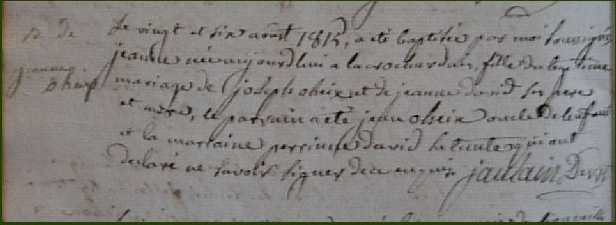 B de
jeanne
oheix
Le vingt et six août 1815, a été baptisée par moi soussigné
jeanne née aujourd'hui à la fille du légitime
mariage de joseph oheix et de jeanne david ses pere
et mere, le parrain a été jean oheix oncle de l'enfant
et la marraine perrinne david sa tante qui ont
declaré ne savoir signer de ce enquis jaulain Desst